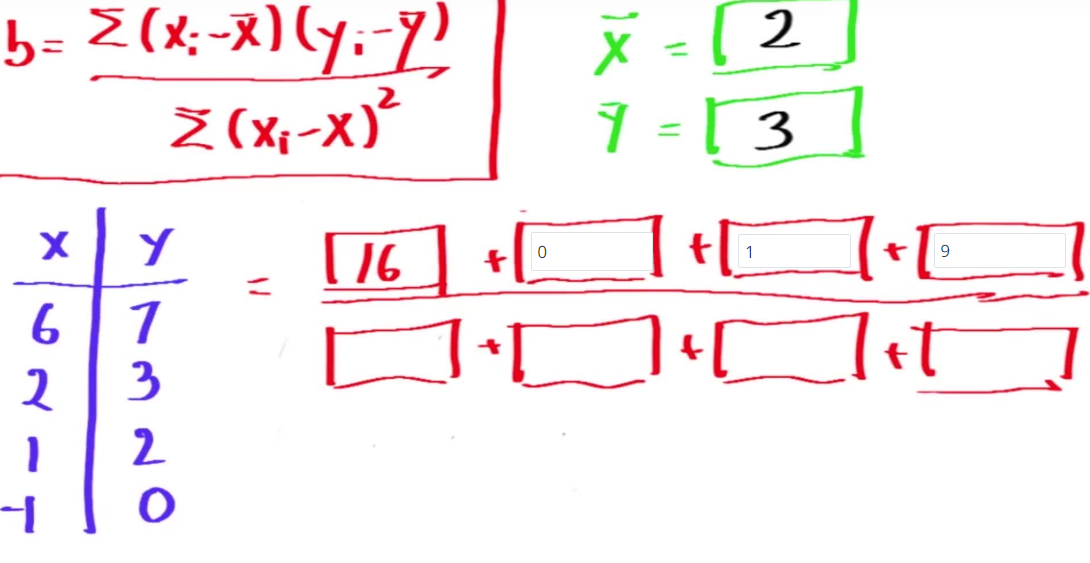 b = Σ(xᵢ-x̄)(yᵢ-ȳ)
Σ(xᵢ-x)²
x̄ = 2
ȳ = 3
x y
6 7
2 3
1 2
-1 0
= 16 + 0 + 1 + 9
+ + +